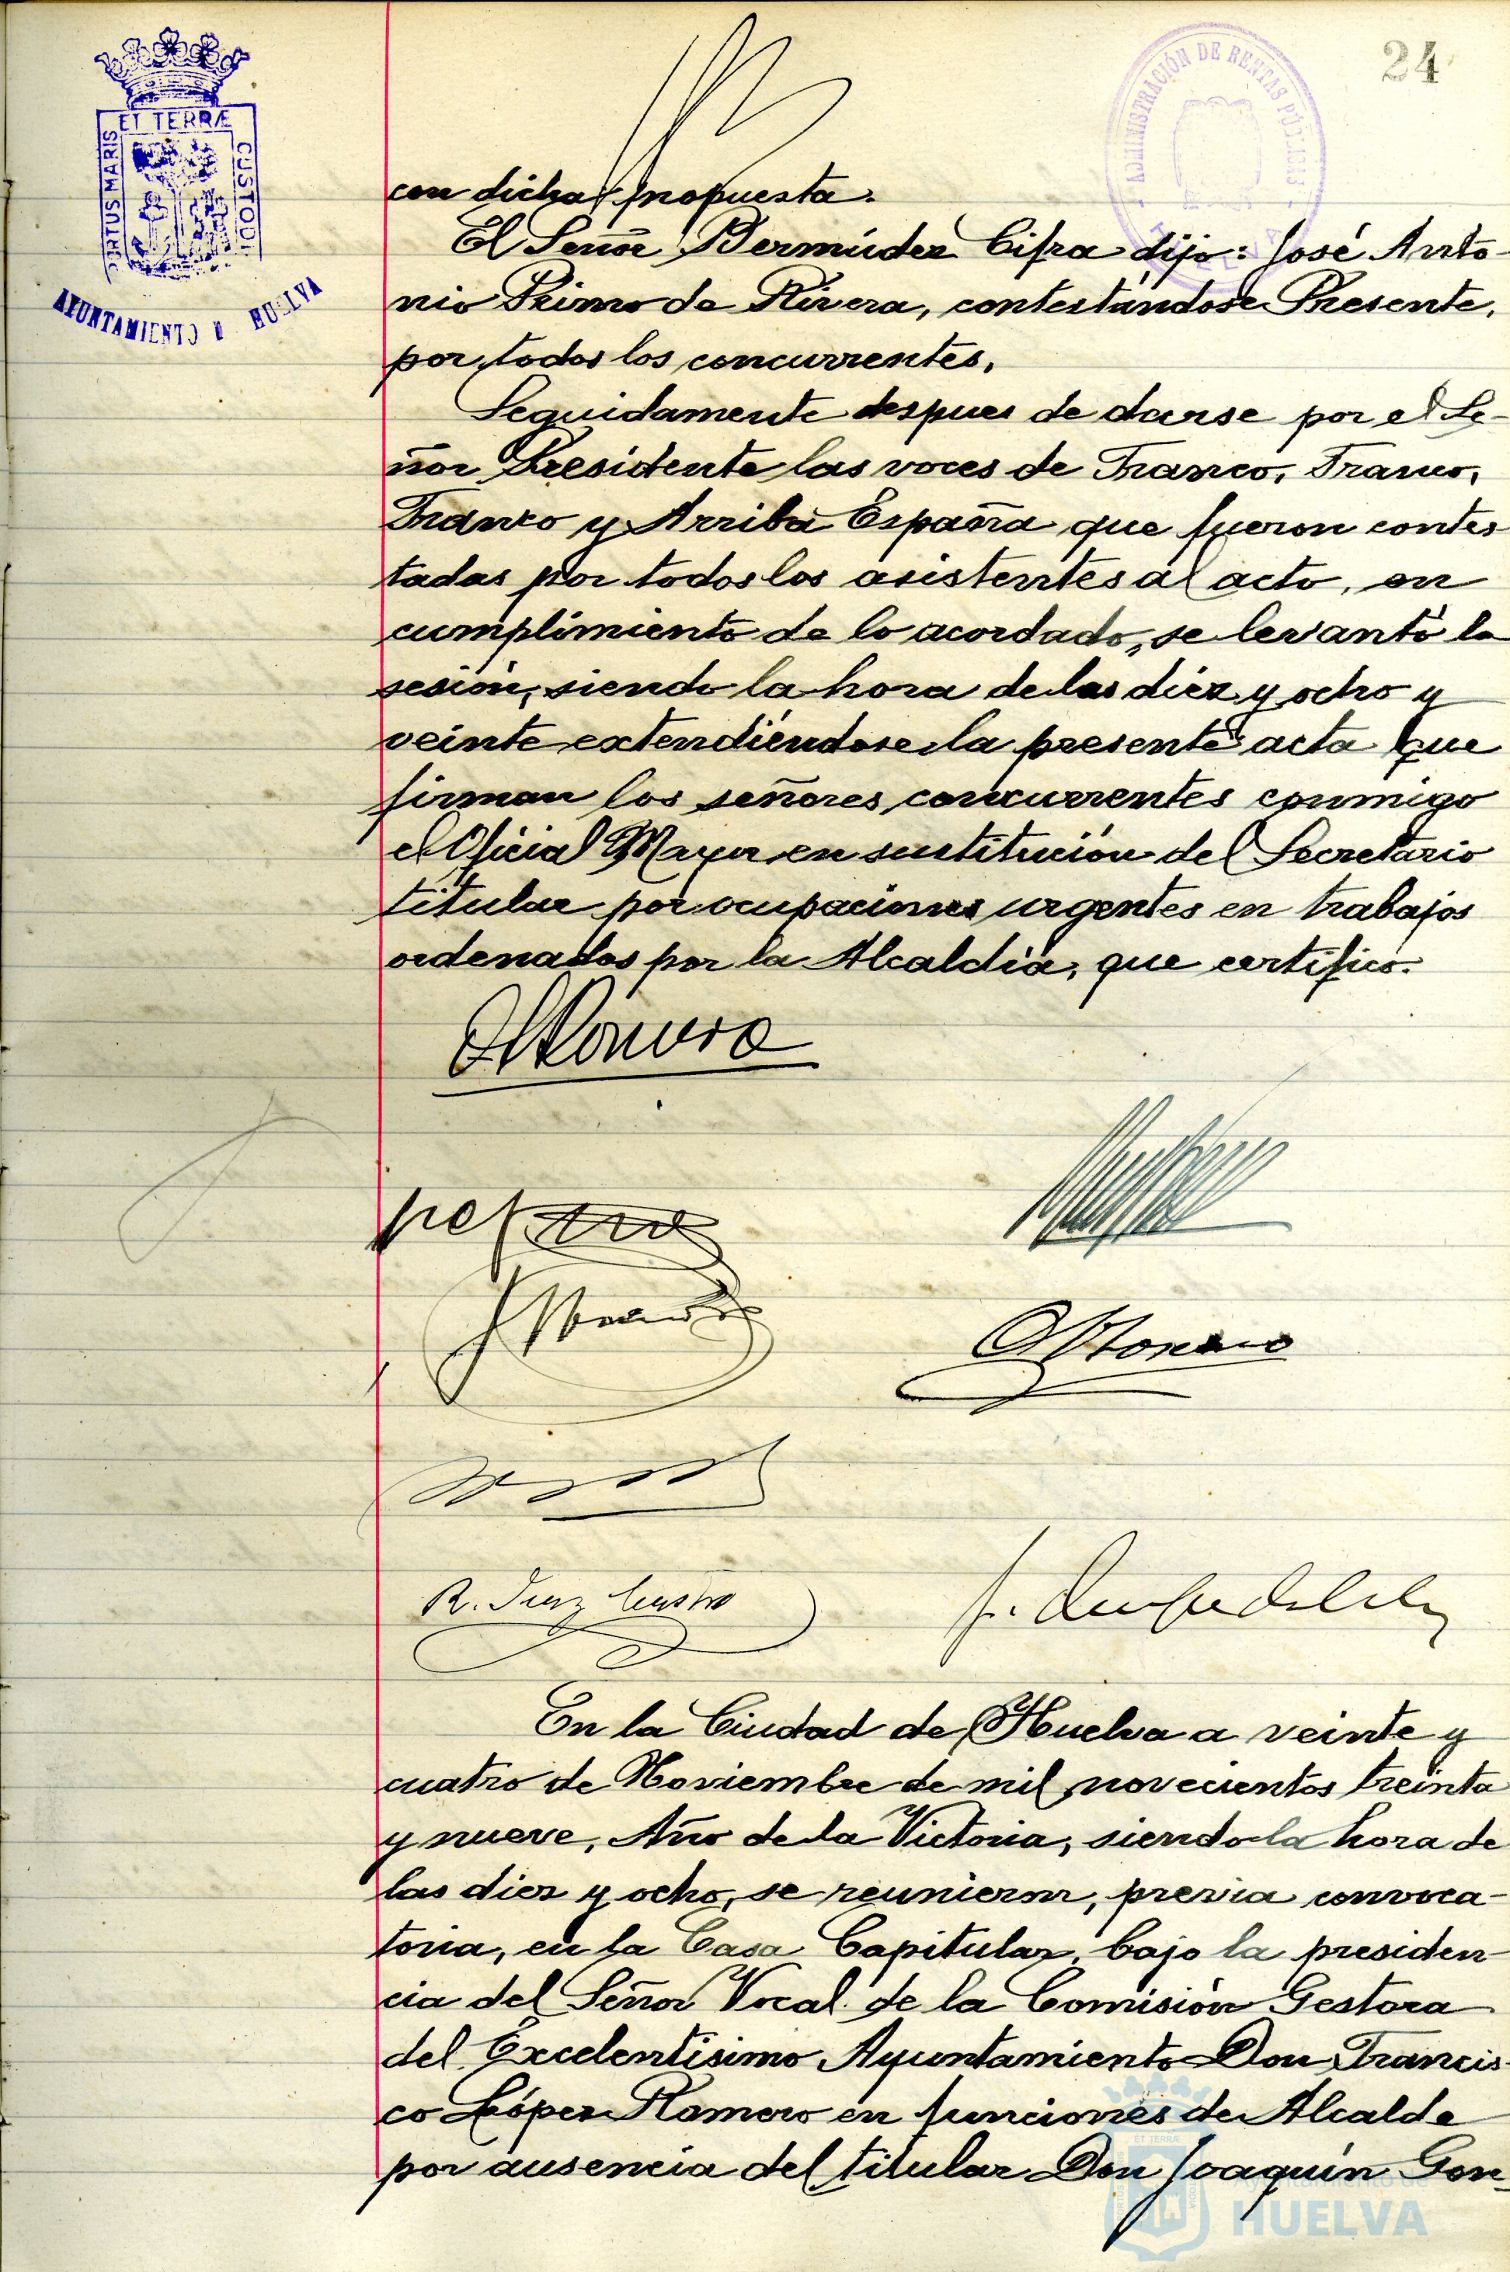 24
ET TERRÆ
PORTUS MARIS
CUSTODI
AYUNTAMIENTO D HUELVA
ADMINISTRACIÓN DE RENTAS PÚBLICAS
con dicha propuesta.
El Señor Bermúdez Cifra dijo: José Anto-
nio Primo de Rivera, contestándose Presente,
por todos los concurrentes.
Seguidamente despues de darse por el Se-
ñor Presidente las voces de Franco, Franco,
Franco y Arriba España que fueron contes
tadas por todos los asistentes al acto, en
cumplimiento de lo acordado, se levantó la
sesión, siendo la hora de las diez y ocho y
veinte extendiéndose la presente acta que
firman los señores concurrentes conmigo
el Oficial Mayor en sustitución del Secretario
titular por ocupaciones urgentes en trabajos
ordenados por la Alcaldía, que certifico.
Romero
R. Díaz Castro
En la Ciudad de Huelva a veinte y
cuatro de Noviembre de mil novecientos treinta
y nueve, Año de la Victoria, siendo la hora de
las diez y ocho, se reunieron, previa convoca-
toria, en la Casa Capitular, bajo la presiden-
cia del Señor Vocal de la Comisión Gestora
del Excelentísimo Ayuntamiento Don Francis-
co López Romero en funciones de Alcalde
por ausencia del titular Don Joaquín Gon-
Ayuntamiento de
HUELVA